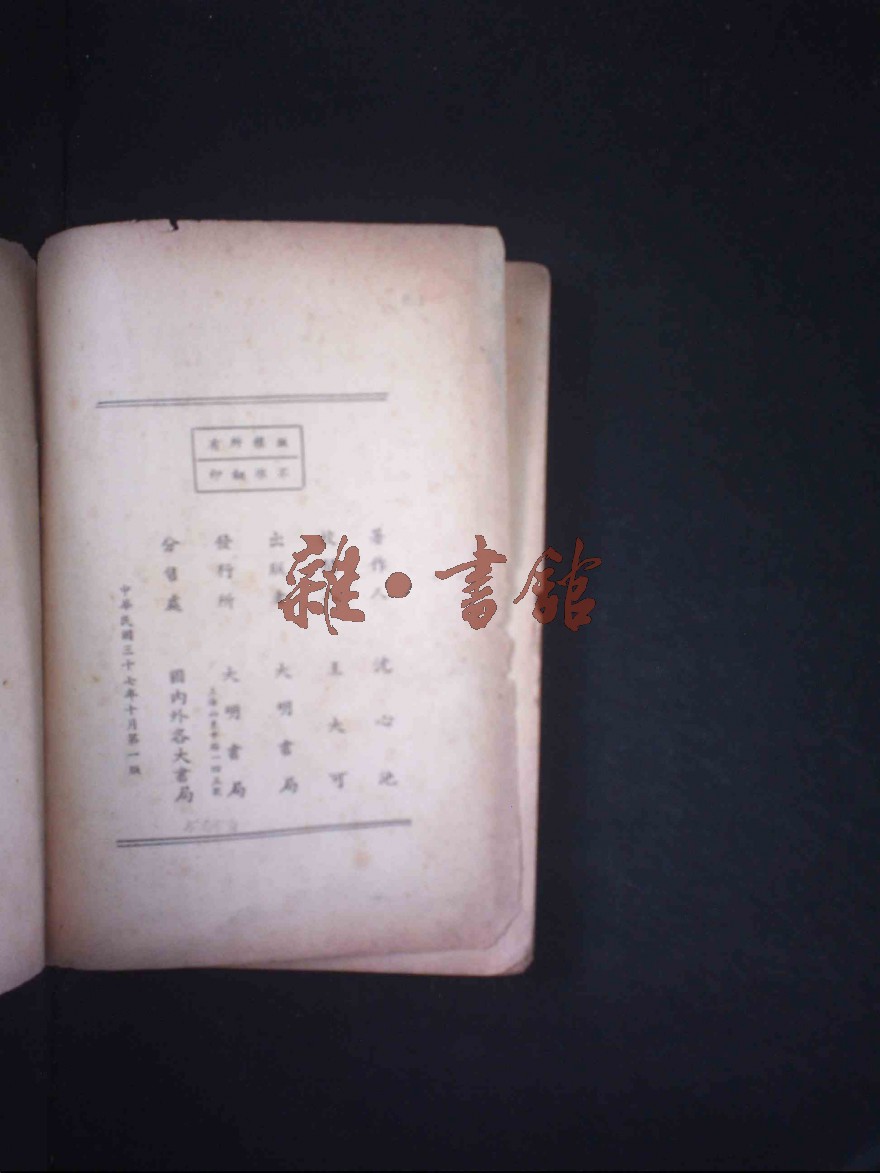 版權所有
不准翻印
著作人 沈心池
校 王大可
出版 大明書局
發行所 大明書局
上海山東中路一四三號
分售處 國內外各大書局
中華民國三十七年十月第一版
雜·書館